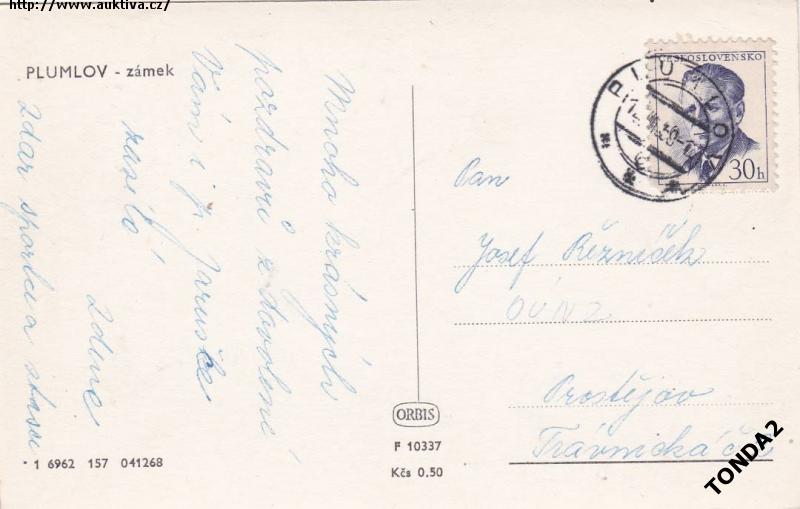 http://www.auktiva.cz/
PLUMLOV - zámek
Mnoho krásných
pozdravů z dovolené
Vám i p. Jaruška
zasílá
Zdene
Zdar sportu a
ČESKOSLOVENSKO
30h
PLUMLOV
Pan
Josef Řezníček
OÚNZ
Prostějov
Trávnická č.
ORBIS
F 10337
Kčs 0,50
* 1 6962 157 041268
TONDA2